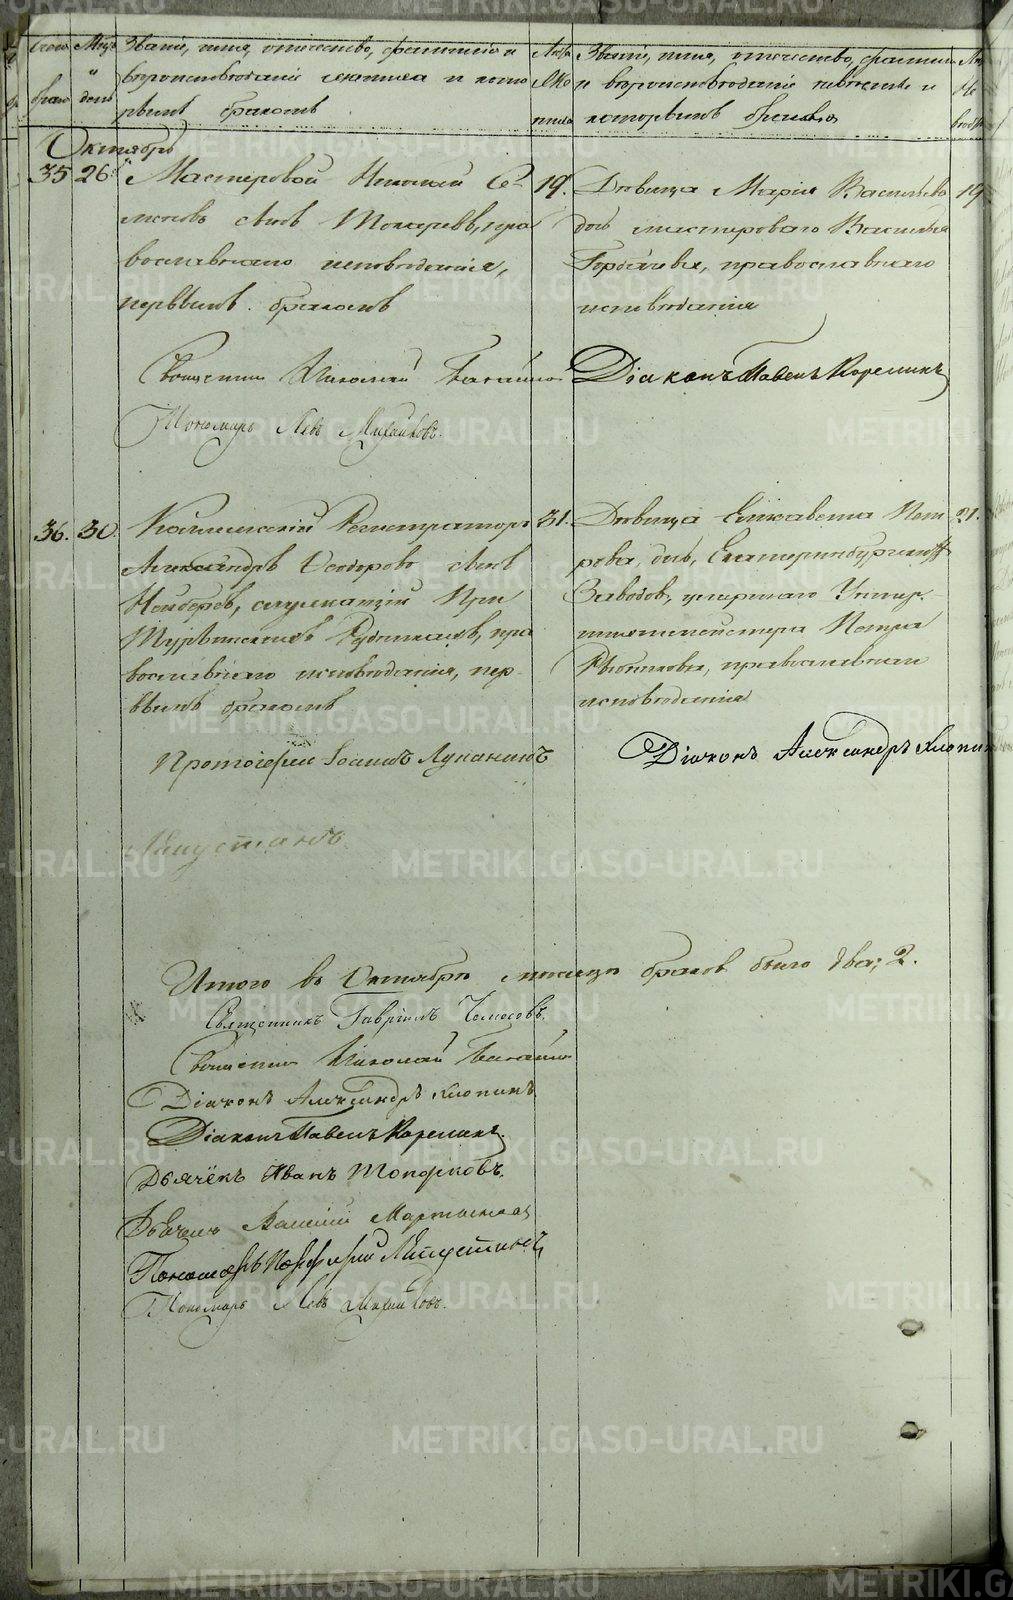 Счетъ браковъ
Мѣсяцъ и день
Званіе, имя, отчество, фамилія и
вѣроисповѣданіе жениха и кото-
рымъ бракомъ
Лѣта жениха
Званіе, имя, отчество, фамилія
и вѣроисповѣданіе невѣсты и
которымъ бракомъ
Октябрь
35 26.
Мастеровой Николай Се-
меновъ сынъ Токаревъ, пра
вославнаго исповѣданія,
первымъ бракомъ
19.
Дѣвица Марія Васильева
дочь мастероваго Василья
Горбачева, православнаго
исповѣданія
19
Священникъ Николай
Діаконъ Павелъ Карелинъ
Пономарь Левъ Михайловъ.
36. 30.
Коллежскій Регистраторъ
Александръ Ѳеодоровъ сынъ
служащій при
Турьинскихъ Рудникахъ, пра
вославнаго исповѣданія, пер-
вымъ бракомъ
31.
Дѣвица Елизавета Пет
рова, дочь, Екатеринбургскихъ
Заводовъ, умершаго Унтеръ-
шихтмейстера Петра
православнаго
исповѣданія
21.
Протоіерей Іоаннъ Луканинъ
Діаконъ Александръ Клопинъ
Итого въ Октябрѣ мѣсяцѣ браковъ было два; 2.
Священникъ Гавріилъ
Священникъ Николай
Діаконъ Александръ Клопинъ
Діаконъ Павелъ Карелинъ.
Дьячекъ Иванъ Топорковъ.
Дьячекъ Василій
Пономарь Порфирій
Пономарь Левъ Михайловъ.
METRIKI.GASO-URAL.RU